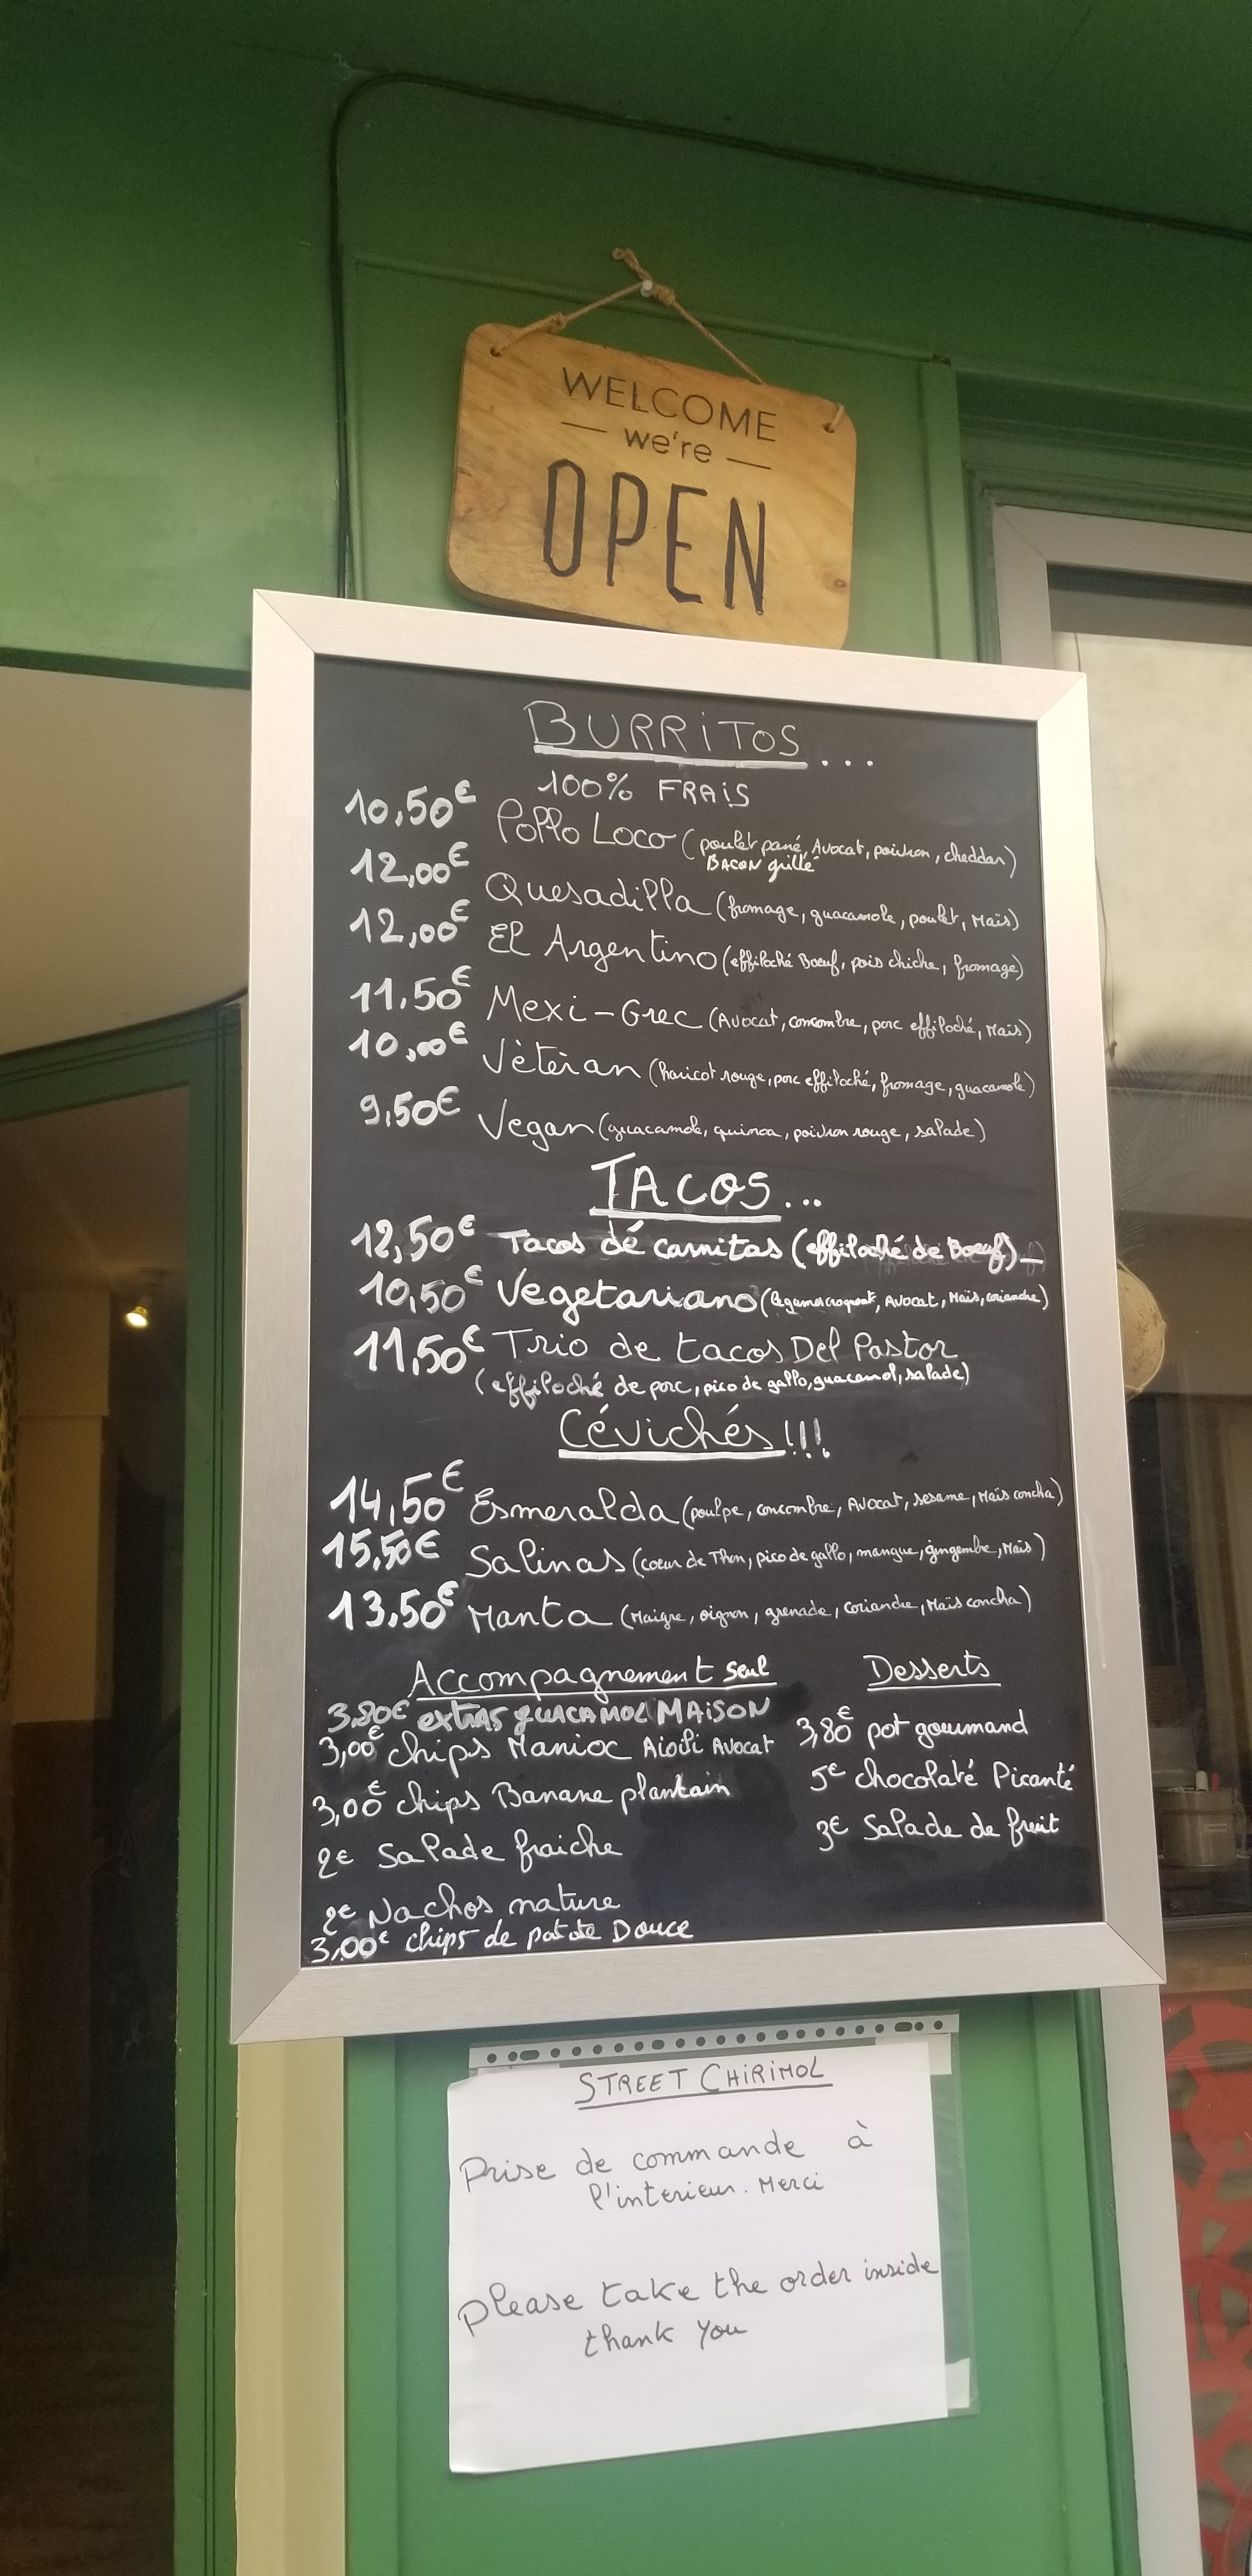 WELCOME
— we're —
OPEN
BURRiTOS...
100% FRAiS
10,50€ Pollo Loco (poulet pané, Avocat, poivron, cheddar)
BACON grillé
12,00€ Quesadilla (fromage, guacamole, poulet, Maïs)
12,00€ El Argentino (effiloché Boeuf, pois chiche, fromage)
11,50€ Mexi-Grec (Avocat, concombre, porc effiloché, Maïs)
10,00€ Vètèran (haricot rouge, porc effiloché, fromage, guacamole)
9,50€ Vegan (guacamole, quinoa, poivron rouge, salade)
TACOS...
12,50€ Tacos dé carnitas (effiloché de Boeuf)
10,50€ Vegetariano (legumes croquant, Avocat, Maïs, coriandre)
11,50€ Trio de tacos Del Pastor
(effiloché de porc, pico de gallo, guacamol, salade)
Cévichés!!!
14,50€ Esmeralda (poulpe, concombre, Avocat, sesame, Maïs concha)
15,50€ Salinas (coeur de Thon, pico de gallo, mangue, gingembre, Maïs)
13,50€ Manta (Maigre, oignon, grenade, coriandre, Maïs concha)
Accompagnement seul
3,80€ extras guACAMOL MAiSON
3,00€ chips Manioc Aioli Avocat
3,00€ chips Banane plantain
2€ Salade fraiche
2€ Nachos nature
3,00€ chips de patate Douce
Desserts
3,80€ pot gourmand
5€ chocolaté Picanté
3€ Salade de fruit
STREET CHiRiMOL
Prise de commande à
l'interieur. Merci
please take the order inside
thank you